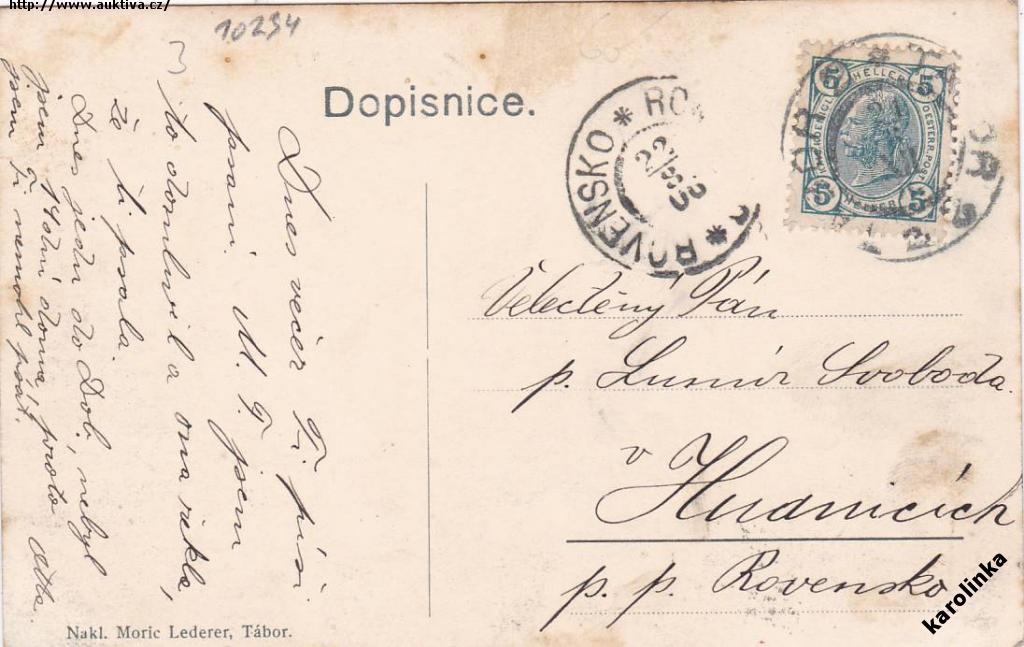 http://www.auktiva.cz/
10234
Dopisnice.
ROVENSKO * ROV
22/
5 HELLER 5
5 HELLER 5
Dnes večer Ti píši
psaní. M. F. jsem
to domluvil a ona řekla,
že ti psala.
Dnes jedu do Dob, nebyl
jsem 14 dní doma, proto
jsem Ti nemohl psát.
Velectěný Pán
p. Lumír Svoboda
v
Hudnicích
p. p. Rovensko
Nakl. Moric Lederer, Tábor.
karolinka